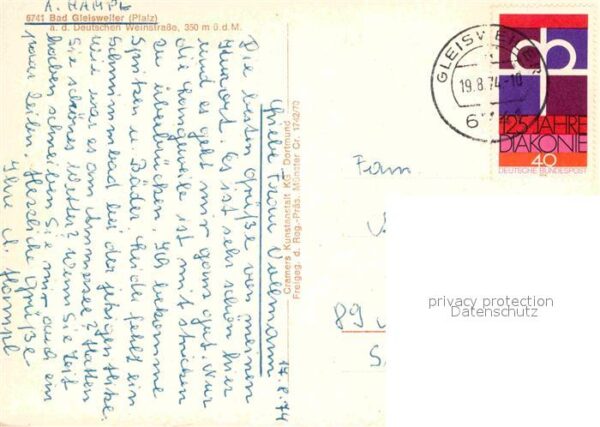 A. HAMPL
6741 Bad Gleisweiler (Pfalz)
a. d. Deutschen Weinstraße, 350 m ü. d. M.
17.8.74
Liebe Frau Vollmann
Die besten Grüße von meinem
Kurort. Es ist sehr schön hier
und es geht mir ganz gut. Nur
die Langeweile ist mit stricken
zu überbrücken. Ich bekomme
Spritzen u. Bäder. Leider fehlt ein
Schwimmbad bei der jetzigen Hitze.
Wie war es am Ammersee? Hatten
Sie schönes Wetter? Wenn Sie Zeit
haben schreiben Sie mir auch ein
paar Zeilen. Herzliche Grüße
Ihre A. Hampl
Cramers Kunstanstalt KG Dortmund
Freigeg. d. Reg.-Präs. Münster Nr. 1742/70
GLEISWEILER
19.8.74-10
6
125 JAHRE
DIAKONIE
40
DEUTSCHE BUNDESPOST
Fam.
89
privacy protection
Datenschutz